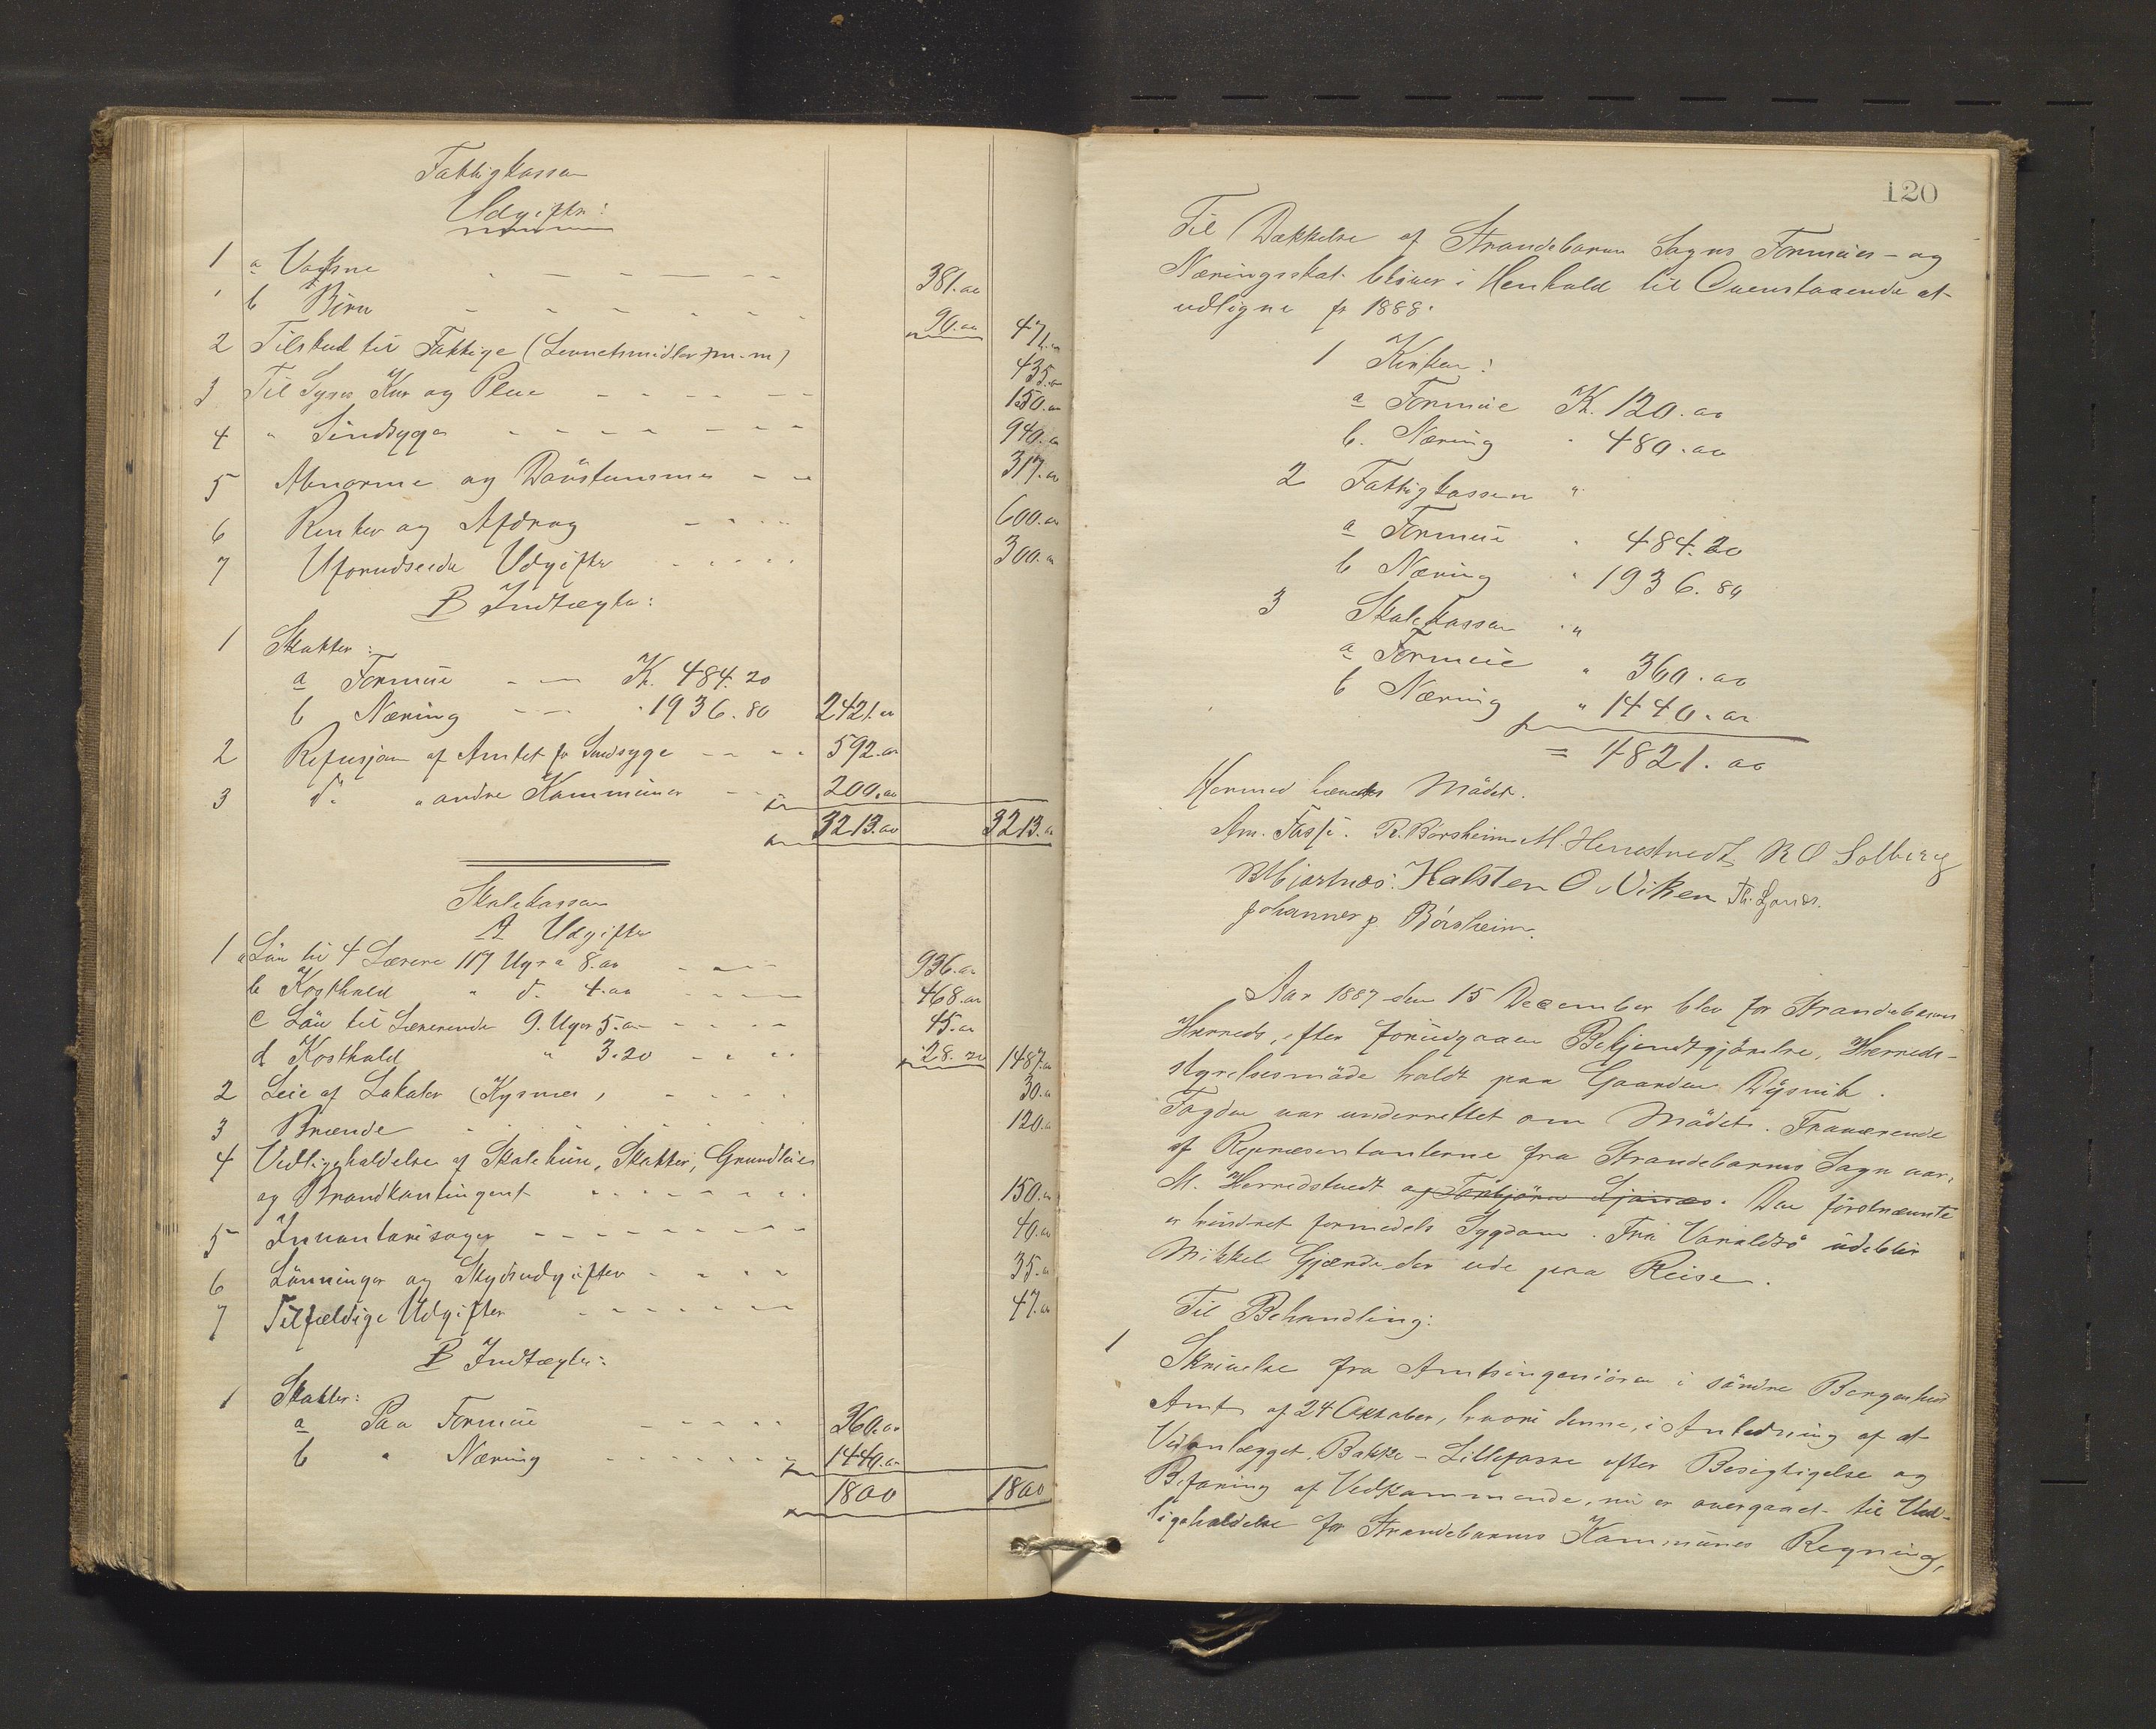 Fattigkassen
Udgifter:
1 a Voxne - - - - - - 381.00
" b Börn - - - - - - 90.00 471.00
2 Tilskud til Fattige (Levnetsmidler m.m) 435.00
3 Til Syges Kur og Pleie - - - - - 150.00
4 " Sindsyge - - - - - - - 940.00
5 Abnorme og Dövstumme - - 317.00
6 Renter og Afdrag - - - - 600.00
7 Uforudseede Udgifter - - - - 300.00
B Indtægter:
1 Skatter:
a Formue - - Kr. 484.20
b Næring - - " 1936.80 2421.00
2 Refusjon af Amtet for Sindsyge - - - - 592.00
3 do " andre Kommuner - - 200.00
3213.00 3213.00
Skolekassen
A Udgifter
1 a Lön til 4 Lærere 117 Uger a 8.00 - - - 936.00
b Kosthold " do 4.00 - - - 468.00
c Lön til Lærerinde 9. Uger 5.00 - - - - 45.00
d Kosthold " 3.20 - - - - 28.80 1487.00
2 Leie af Lokaler (Kysnes) - - - - 30.00
3 Brænde - - - - - - 120.00
4 Vedligeholdelse af Skolehuse, Skatter, Grundleier
og Brandkontingent - - - - - - 150.00
5 Inventariesager - - - - - - - 40.00
6 Lönninger og Skydsudgifter - - - - 35.00
7 Tilfældige Udgifter - - - - - - 47.00
B Indtægter:
1 Skatter:
a Paa Formue - - - - 360.00
b " Næring - - - - - - 1440.00
1800 1800
120
Til Dækkelse af Strandebarm Sogns Formues- og
Næringsskat bliver i Henhold til Ovenstaaende at
udligne for 1888.
1 Kirken:
a Formue Kr. 120.00
b. Næring " 480.00
2 Fattigkassen "
a Formue " 484.20
b Næring " 1936.80
3 Skolekassen "
a Formue " 360.00
b Næring " 1440.00
= 4821.00
Hermed hævedes Mödet.
Am. Fosse. R. Börsheim M. Herrestvedt R O Solberg
Halsten O Viken Th. Ljones.
Johannes J. Börsheim.
Aar 1887 den 15 December blev for Strandebarm
Herreds, efter forudgaaen Bekjendtgjörelse, Herreds-
styrelsesmöde holdt paa Gaarden Dysvik.
Fogden var underrettet om Mödet. Fraværende
af Repræsentanterne fra Strandebarms Sogn var,
M. Herrestvedt og Torbjörn Ljones. Den förstnævnte
er hindret formedels Sygdom. Fra Varaldsö udeblir
Mikkel Gjerde der ude paa Reise.
Til Behandling:
1 Skrivelse fra Amtsingeniören i söndre Bergenhus
Amt af 24 Oktober, hvori denne, i Anledning af at
Veianlægget Bakke - Lillefosse efter Besigtigelse og
Befaring af Vedkommende, nu er overgaaet til Ved-
ligeholdelse for Strandebarms Kommunes Regning,